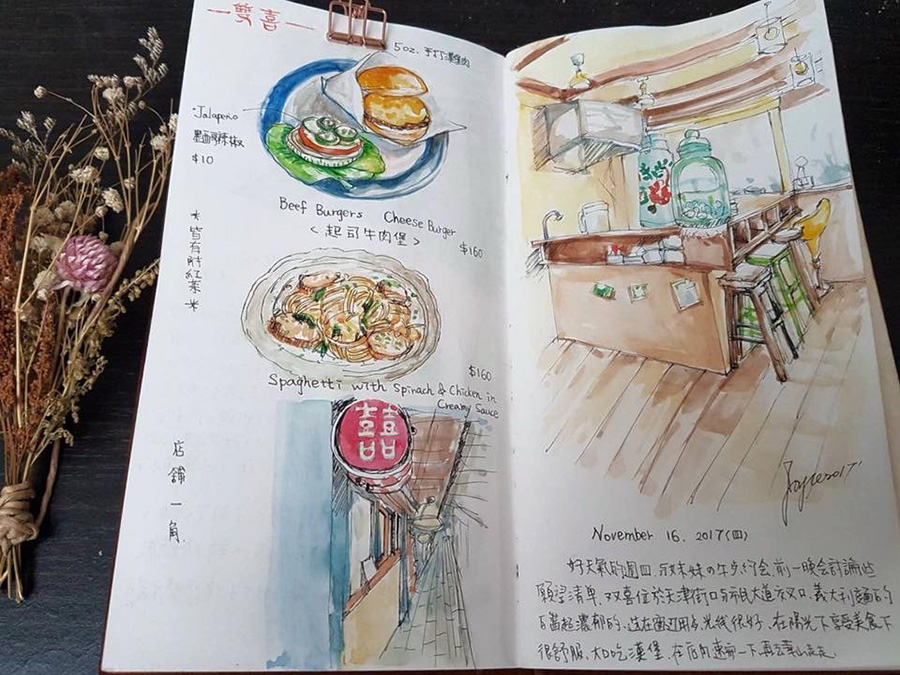 一雙喜一
5oz. 手打漢堡肉
·Jalapeño
墨西哥辣椒
$10
Beef Burgers Cheese Burger
<起司牛肉堡>
$160
*皆有附紅茶*
$160
Spaghetti with Spinach & Chicken in
Creamy Sauce
囍
店鋪一角
Joyce2017'
November 16. 2017(四)
好天氣的週四,與妹妹の午餐約會,前一晚會討論些
願望清單,双喜位於天津街口與市民大道交叉口,義大利麵的
白醬超濃郁的,坐在窗边用台光线很好,在陽光下享受美食下
很舒服,大口吃漢堡,在店內